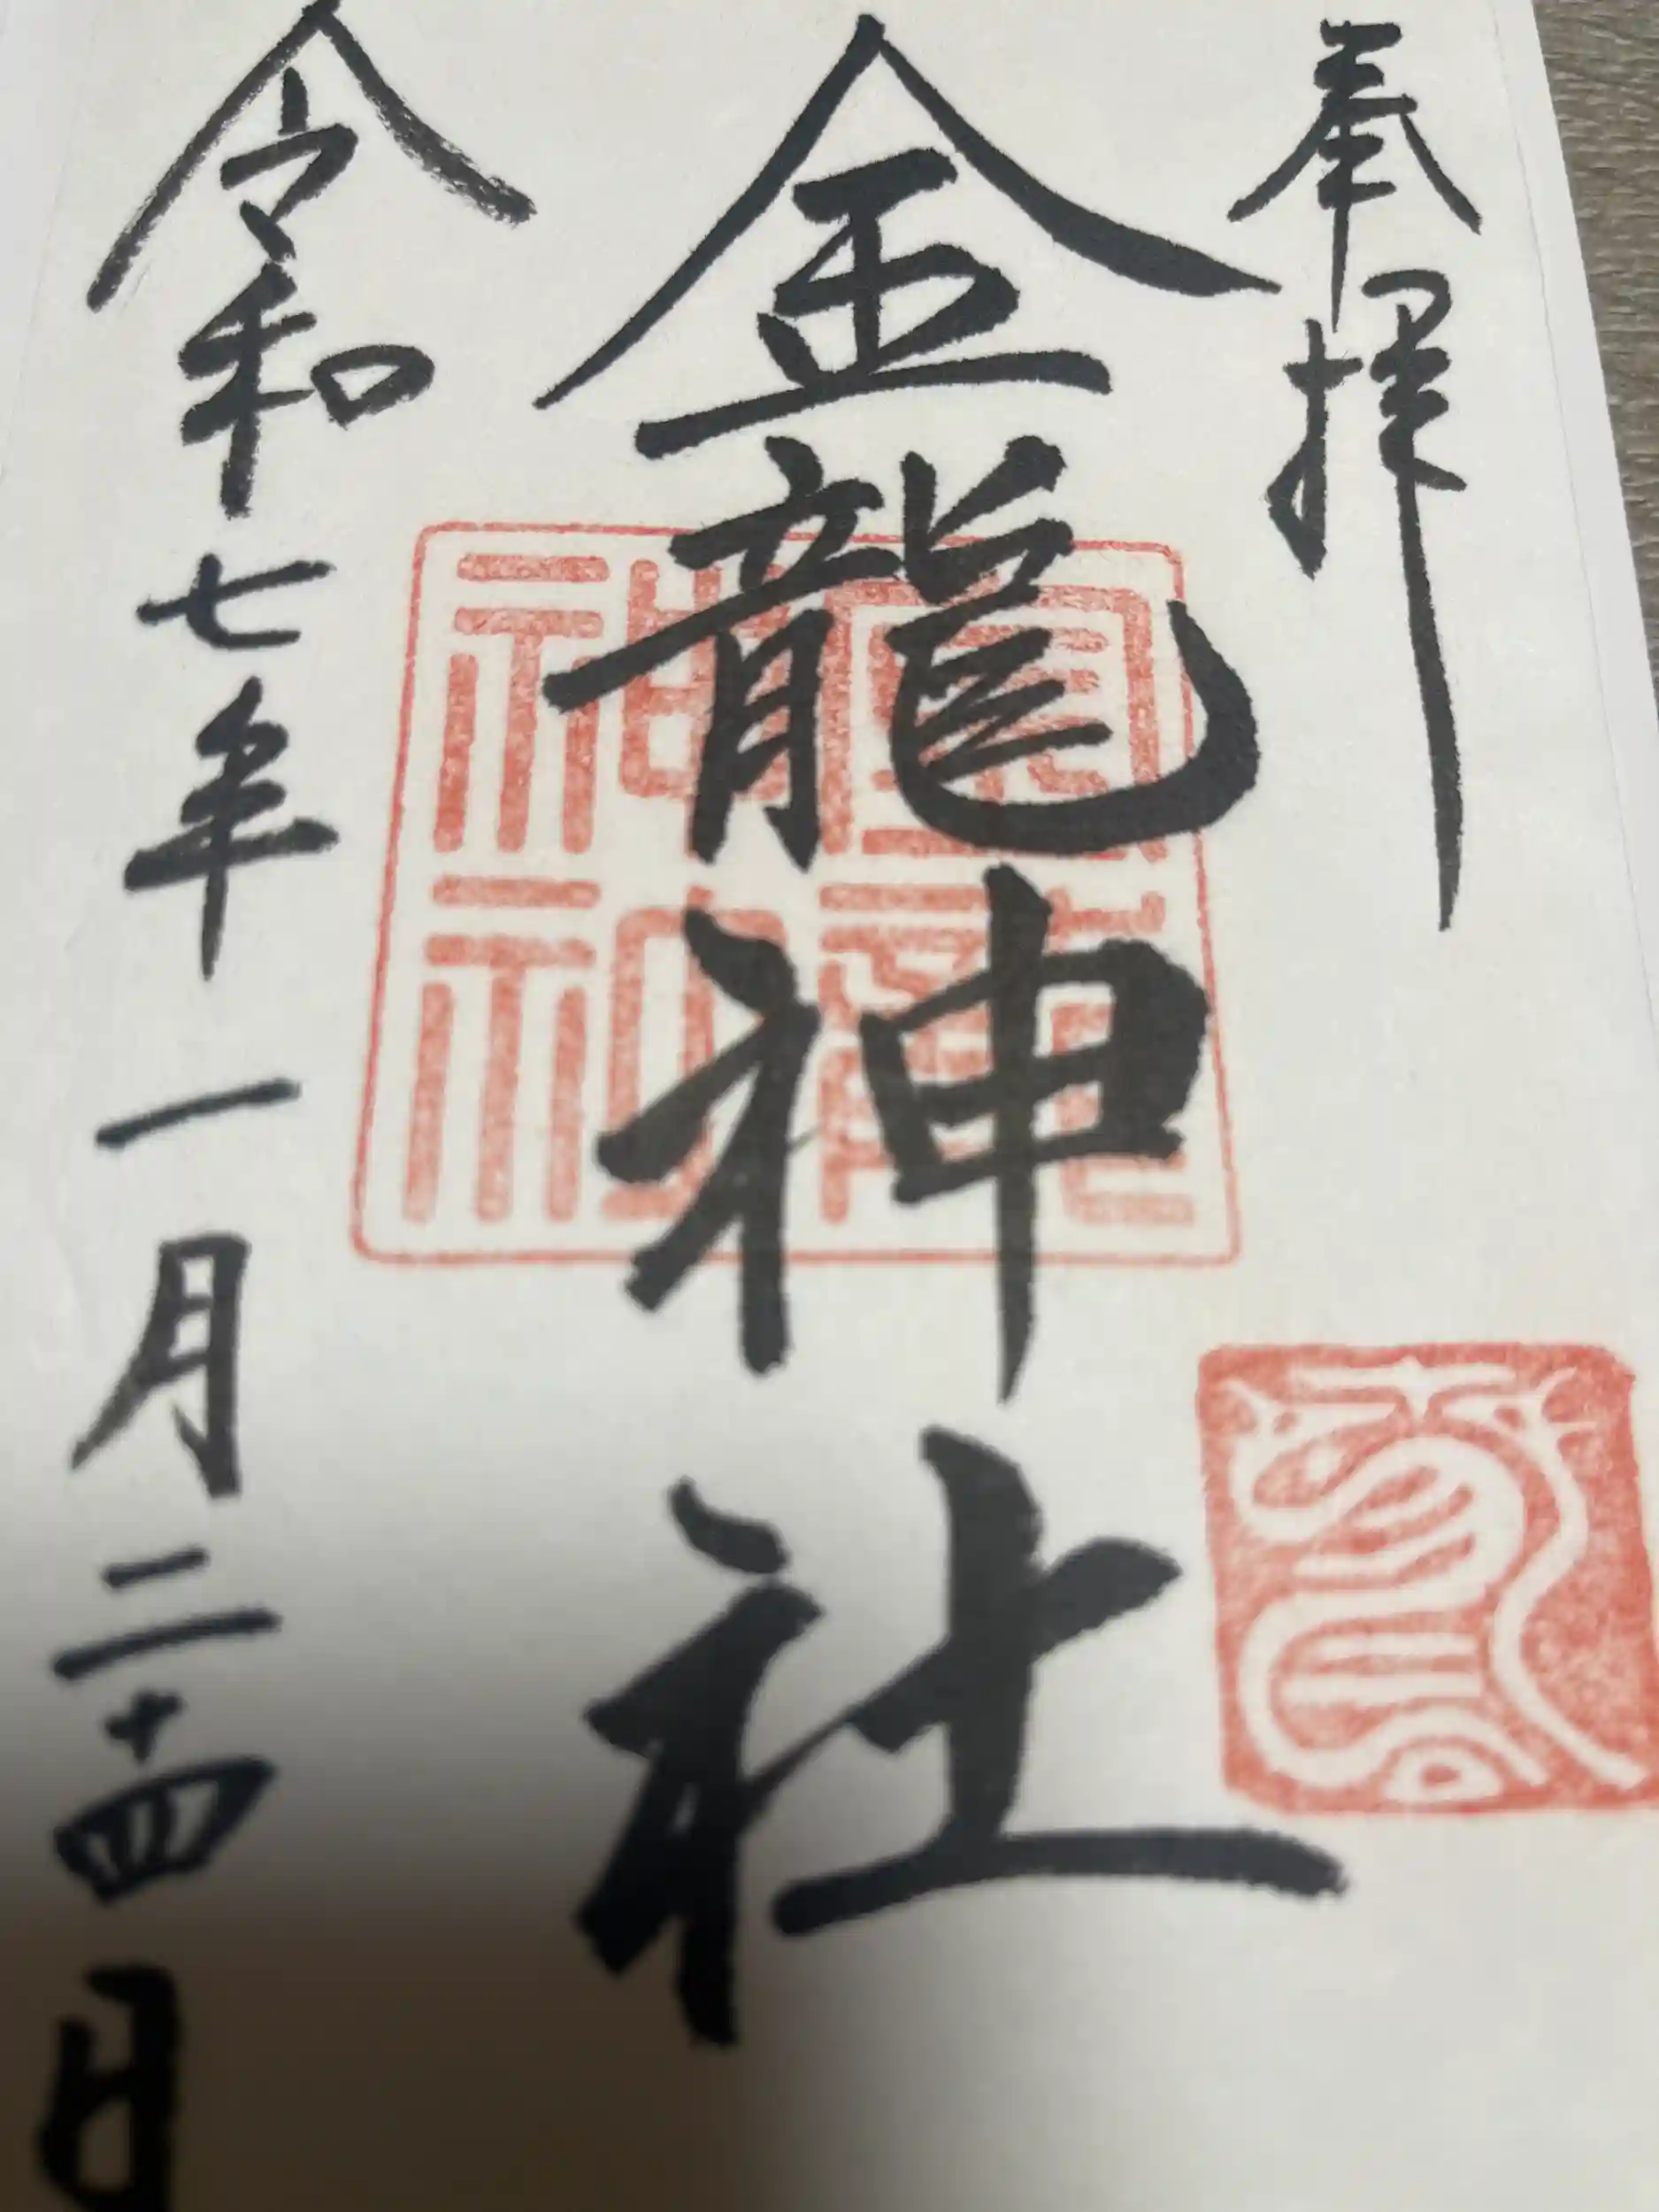 奉拝
金龍神社
令和七年一月二十四日